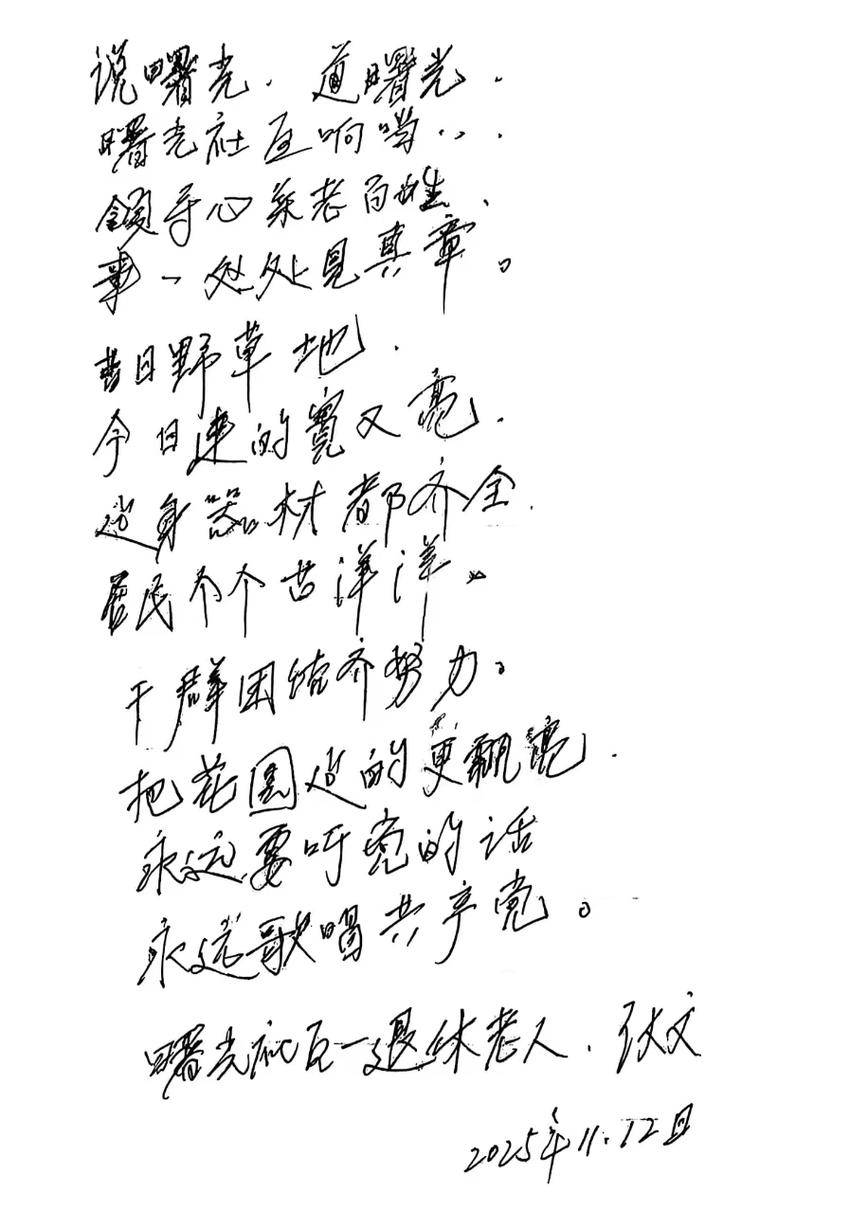 说曙光，道曙光，
曙光社区响当、、，
领导心系老百姓，
事、处处见真章。
昔日野草地，
今日建的宽又亮，
健身器材都齐全，
居民个个喜洋洋。
干群团结齐努力。
把花园造的更飘亮，
永远要听党的话
永远歌唱共产党。
曙光社区一退休老人，张文
2025年11.12日